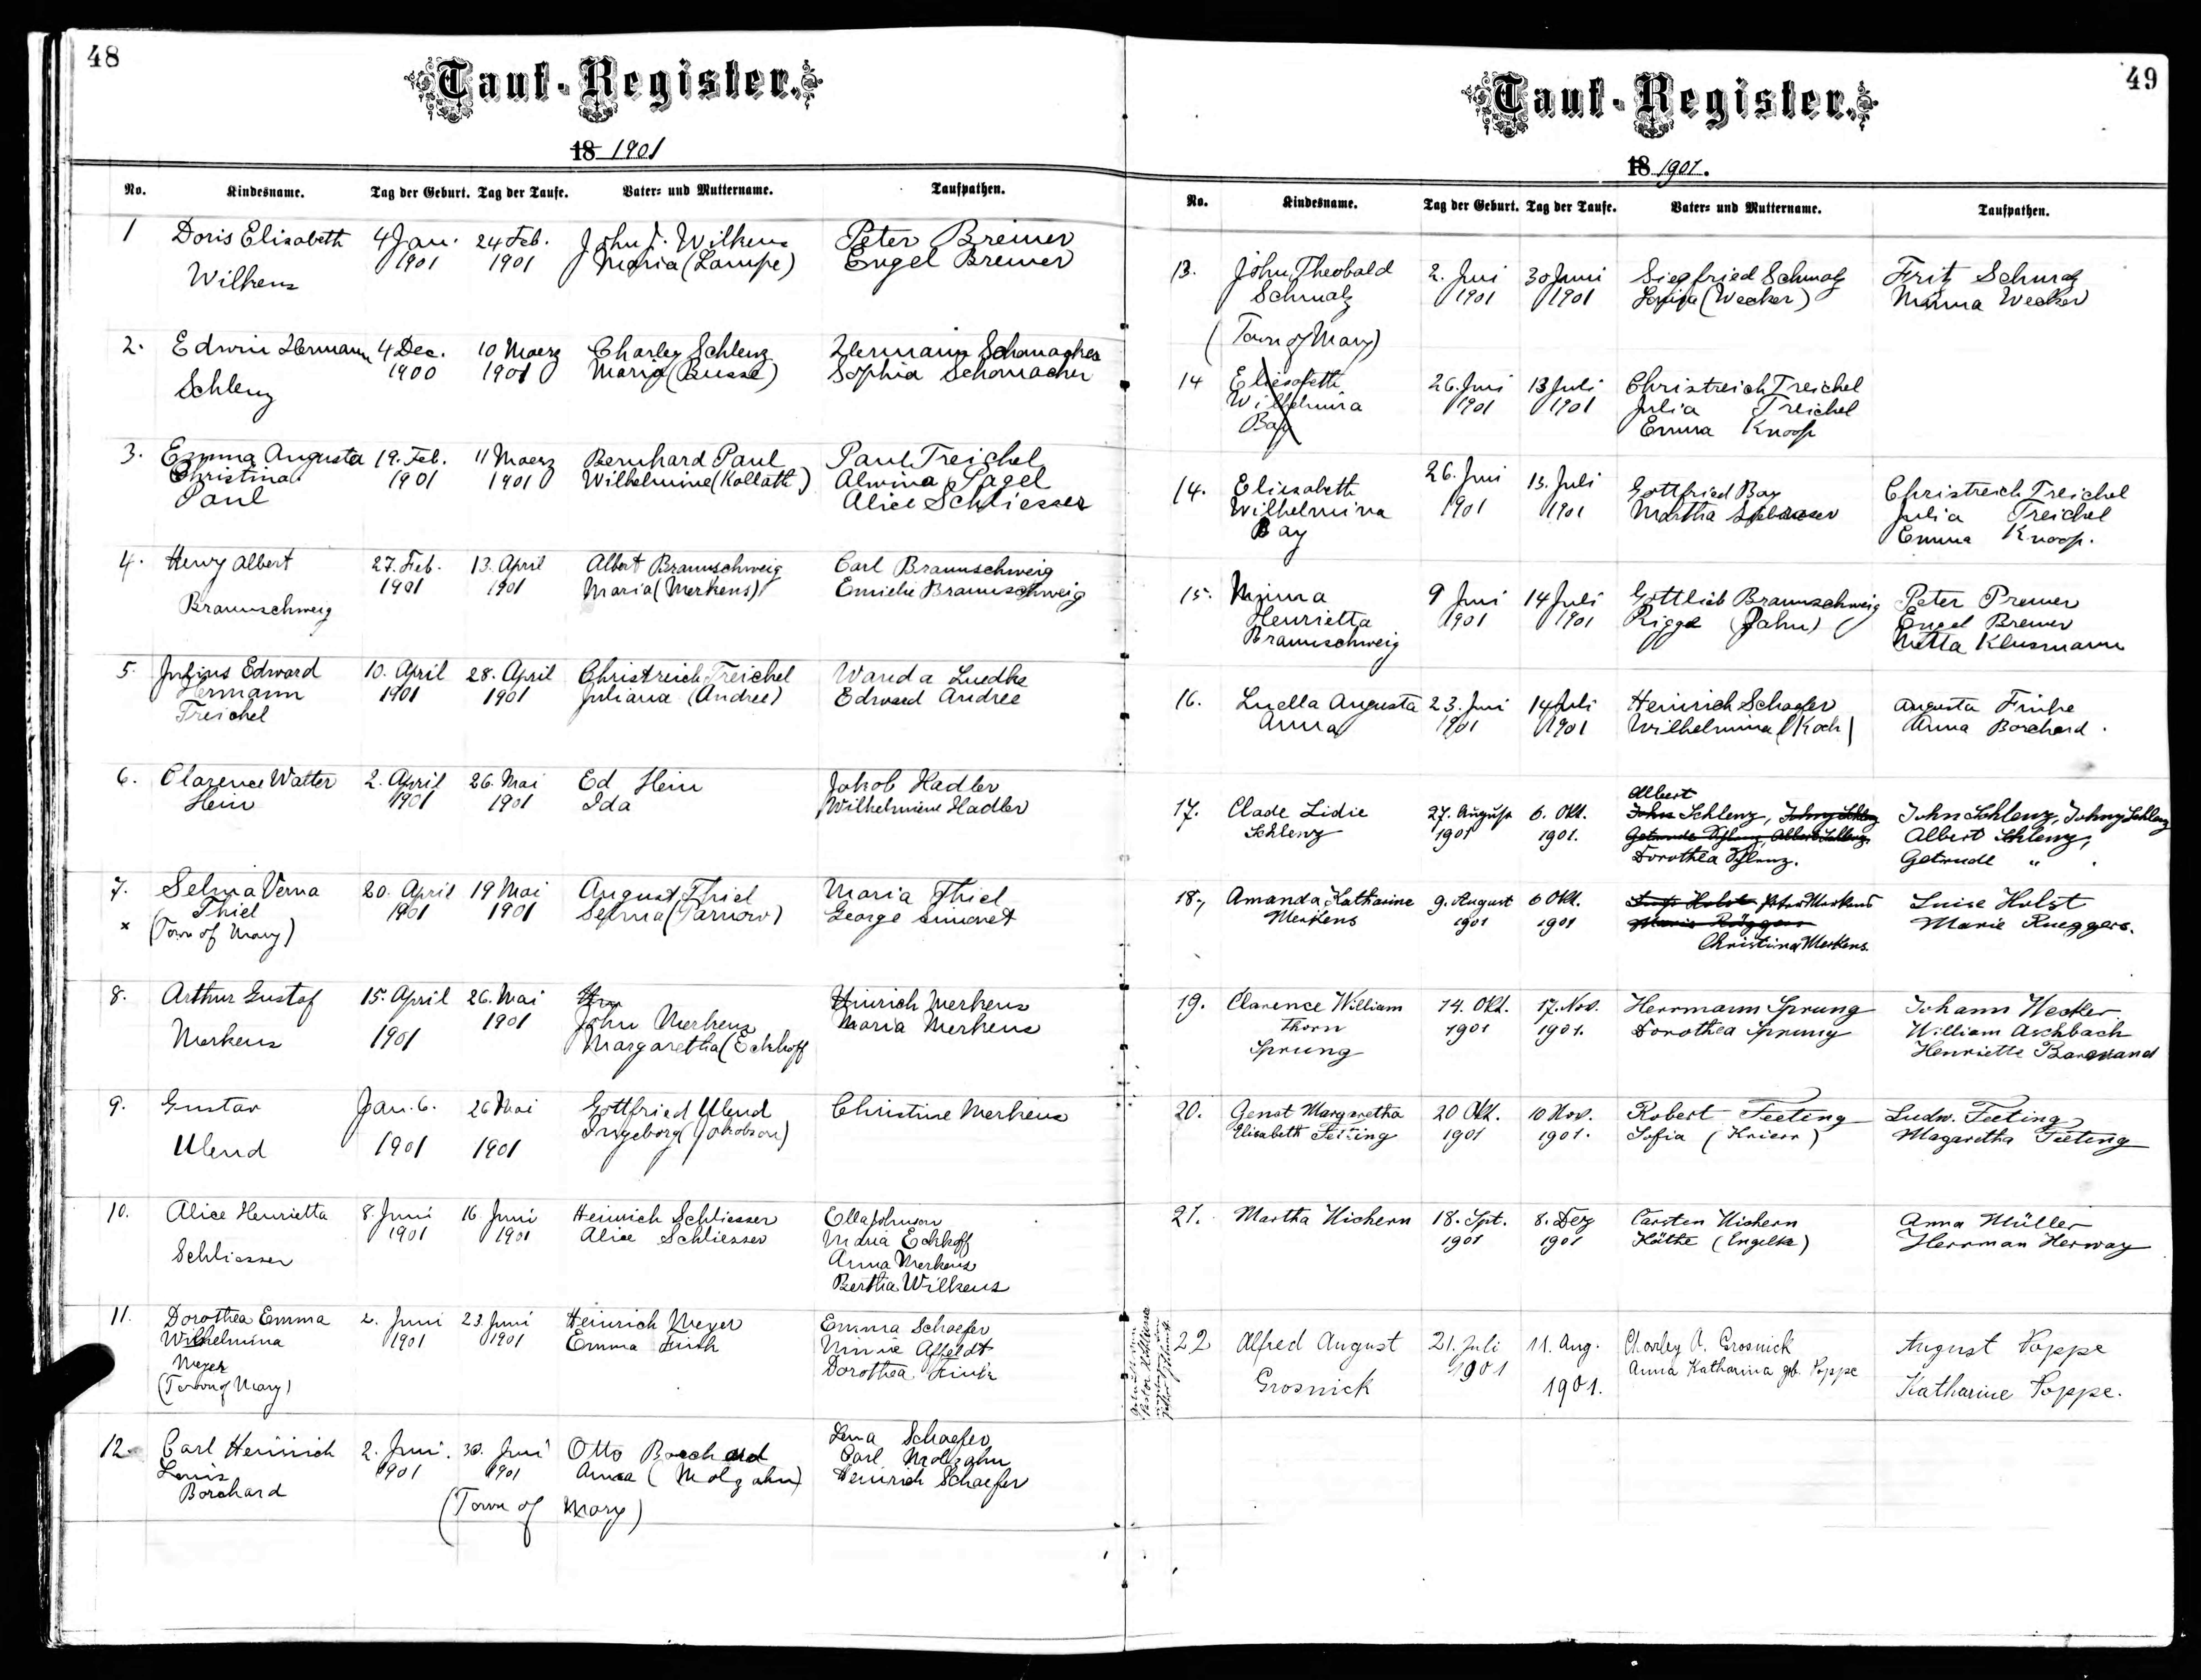 48
Tauf-Register.
18 1901
No. Kindesname. Tag der Geburt. Tag der Taufe. Vater- und Muttername. Taufpathen.
1 Doris Elisabeth 4 Jan. 24 Feb. John F. Wilkens Peter Bremer
1901 1901 Maria (Lampe) Engel Bremer
Wilkens
2. Edwin Hermann 4 Dec. 10 Maerz Charley Schlenz Hermann Schomacher
1900 1901 Maria (Busse) Sophia Schomacher
Schlenz
3. Emma Augusta 19. Feb. 11 Maerz Bernhard Paul Paul Treichel
Christina 1901 1901 Wilhelmine (Kollath) Alwina Pagel
Paul Alice Schliesser
4. Henry Albert 27. Feb. 13. April Albert Braunschweig Carl Braunschweig
1901 1901 Maria (Merkens) Emielie Braunschweig
Braunschweig
5. Julius Edward 10. April 28. April Christreich Treichel Wanda Luedke
Hermann 1901 1901 Juliana (Andree) Edward Andree
Treichel
6. Clarence Walter 2. April 26. Mai Ed Hein Jakob Hadler
Hein 1901 1901 Ida Wilhelmine Hadler
7. Selma Verna 20. April 19 Mai August Thiel Maria Thiel
Thiel 1901 1901 Selma (Parnow) George Simonet
x (Town of Mary)
8. Arthur Gustaf 15. April 26. Mai Hinrich Merkens
1901 John Merkens Maria Merkens
Merkens 1901 Margaretha (Eckhoff
9. Gustav Jan. 6. 26 Mai Gottfried Ulend Christine Merkens
Ingeborg (Jakobson)
Ulend 1901 1901
10. Alice Henrietta 8. Juni 16 Juni Heinrich Schliesser Ella Johnson
1901 1901 Alice Schliesser Maria Eckhoff
Schliesser Anna Merkens
Bertha Wilkens
11. Dorothea Emma 2. Juni 23 Juni Heinrich Meyer Emma Schaefer
Wilhelmina 1901 1901 Emma Fink Minnie Affeldt
Meyer Dorothea Fink
(Town of Mary)
12. Carl Heinrich 2. Juni. 30. Juni Otto Borchard Lena Schaefer
Louis 1901 1901 Anna (Molzahn) Carl Molzahn
Borchard Heinrich Schaefer
(Town of Mary)
49
Tauf-Register.
18 1901.
No. Kindesname. Tag der Geburt. Tag der Taufe. Vater- und Muttername. Taufpathen.
13. John Theobald 2. Juni 30 Juni Siegfried Schmalz Fritz Schmalz
Schmalz 1901 1901 Louisa (Wecker) Minna Wecker
(Town of Mary)
14 Eliesabeth 26. Juni 13 Juli Christreich Treichel
Wilhelmina 1901 1901 Julia Treichel
Bay Emma Knoop
14. Eliesabeth 26. Juni 13. Juli Gottfried Bay Christreich Treichel
Wilhelmina 1901 1901 Martha Julia Treichel
Bay Emma Knoop.
15. Minna 9 Juni 14 Juli Gottlieb Braunschweig Peter Premer
Henrietta 1901 1901 Rigge (Jahn) Engel Bremer
Braunschweig Metta Klusmann
16. Luella Augusta 23. Juni 14 Juli Heinrich Schaefer Augusta Finke
Anna 1901 1901 Wilhelmina (Koch) Anna Borchard.
Albert
17. Clade Lidie 27. August 6. Okt. John Schlenz, Johny Schlenz John Schlenz, Johny Schlenz
Schlenz 1901 1901. Getrude Schlenz, Albert Schlenz. Albert Schlenz,
Dorothea Schlenz. Getrude "
18. Amanda Katharine 9. August 6 Okt. Luise Holst Peter Merkens Luise Holst
Merkens 1901 1901 Marie Rüggers Marie Rueggers.
Christina Merkens
19. Clarence William 14. Okt. 17. Nov. Herrmann Sprung Johann Wecker
Thorn 1901 1901. Dorothea Sprung William Aschbach
Sprung Henriette
20. Genat Margaretha 20 Okt. 10 Nov. Robert Feeting Ludw. Feeting
Elisabeth Feeting 1901 1901. Sofia (Krierr) Magaretha Feeting
21. Martha Wichern 18. Spt. 8. Dez Carsten Wichern Anna Müller
1901 1901 Käthe (Engelk) Herrman Herway
22 Alfred August 21. Juli 11. Aug. Charley A. Grosnick August Poppe
1901 Anna Katharina geb. Poppe
Grosnick 1901. Katharine Poppe.